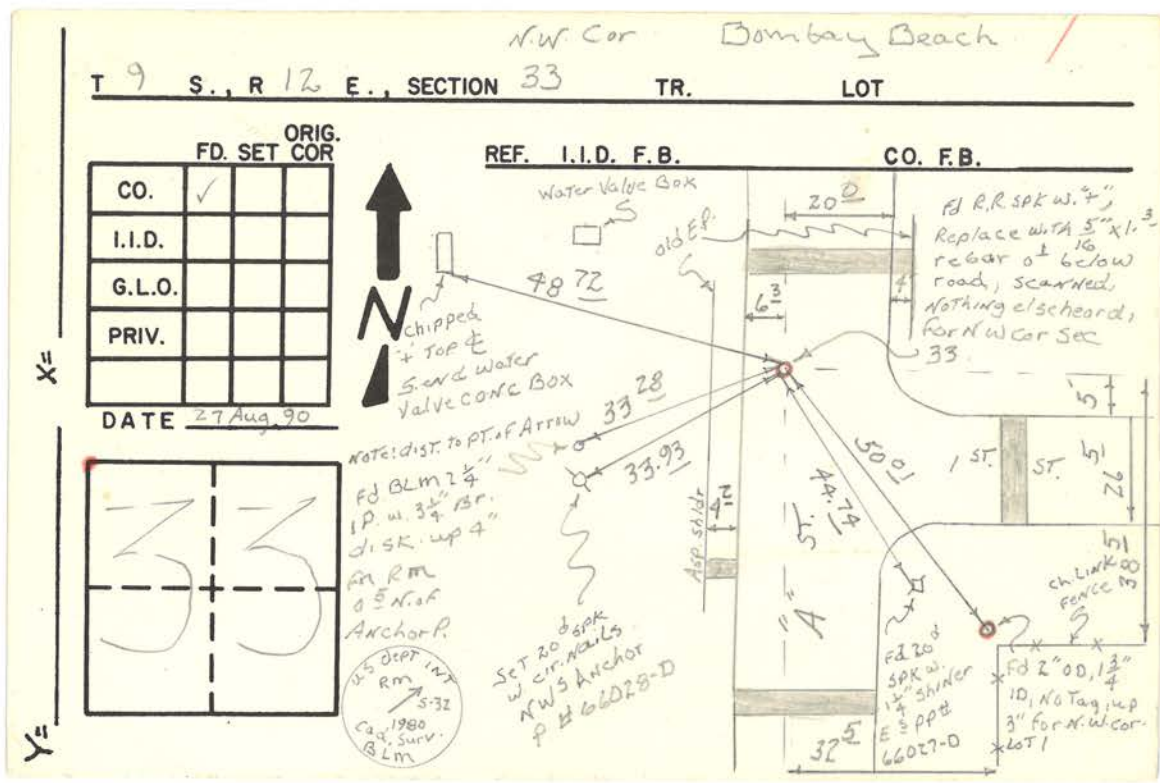 N.W. Cor Bombay Beach
T 9 S., R 12 E., SECTION 33 TR. LOT
FD. SET ORIG. COR
CO. ✓
I.I.D.
G.L.O.
PRIV.
DATE 27 Aug. 90
X=
Y=
33
N
REF. I.I.D. F.B. CO. F.B.
Water Valve Box
old EP.
20 0
6 3
4
48 72
chipped
+ TOP ℄
S. end water
Valve CONC BOX
Fd R.R. SPK w. "+",
Replace with 5/16" x 1.3
rebar 0 1 below
road, scanned,
NOTHING else heard,
for NW Cor Sec
33
33 28
33.93
NOTE: dist. to PT. of Arrow
Fd BLM 2 1/4"
IP. w. 3 1/4" Br.
disk. up 4"
0 5 N. of
Anchor P.
US DEPT INT
RM
S-32
1980
Cad. Surv.
BLM
Set 20 d SPK
w cir. nails
NWS Anchor
P # 66028-D
Asp. shldr
4 2
"A" ST.
50 01
44.74
1 ST. ST.
5'
22
5'
38
ch. LINK
FENCE
Fd 20 d
SPK w.
1 1/4" Shiner
E 5 PP#
66027-D
Fd 2" OD, 1 3/4"
ID, No Tag, up
3" for N.W. cor.
LOT 1
32 5